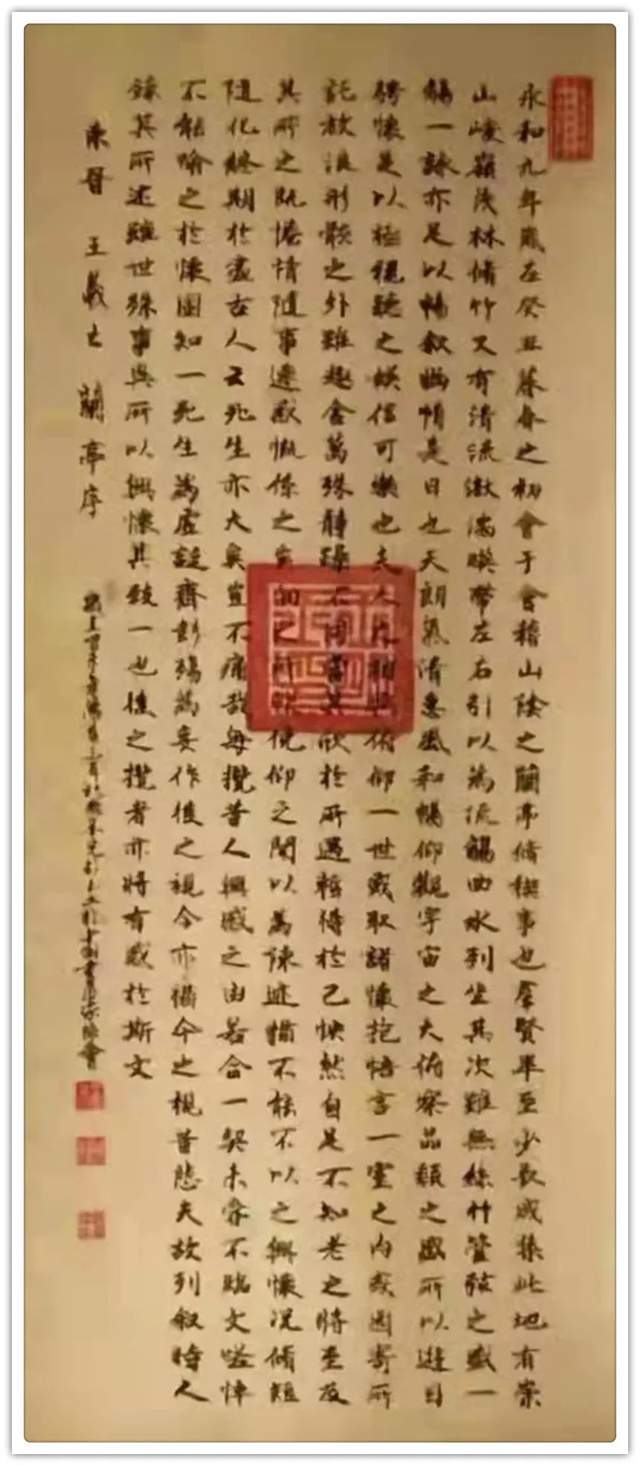 永和九年歲在癸丑暮春之初會于會稽山陰之蘭亭脩稧事也羣賢畢至少長咸集此地有崇
山峻嶺茂林脩竹又有清流激湍暎帶左右引以為流觴曲水列坐其次雖無絲竹管弦之盛一
觴一詠亦足以暢敘幽情是日也天朗氣清惠風和暢仰觀宇宙之大俯察品類之盛所以遊目
騁懷足以極視聽之娛信可樂也夫人之相與俯仰一世或取諸懷抱悟言一室之內或因寄所
託放浪形骸之外雖趣舍萬殊靜躁不同當其欣於所遇暫得於己怏然自足不知老之將至及
其所之既惓情隨事遷感慨係之矣向之所欣俛仰之間以為陳迹猶不能不以之興懷況脩短
隨化終期於盡古人云死生亦大矣豈不痛哉每攬昔人興感之由若合一契未嘗不臨文嗟悼
不能喻之於懷固知一死生為虛誕齊彭殤為妄作後之視今亦猶今之視昔悲夫故列敘時人
錄其所述雖世殊事異所以興懷其致一也後之攬者亦將有感於斯文
東晉 王羲之 蘭亭序